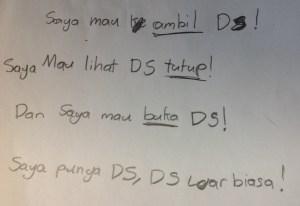 Saya mau ambil DS!
Saya Mau lihat DS tutup!
Dan Saya mau buka DS!
Saya punga DS, DS Luar biasa!